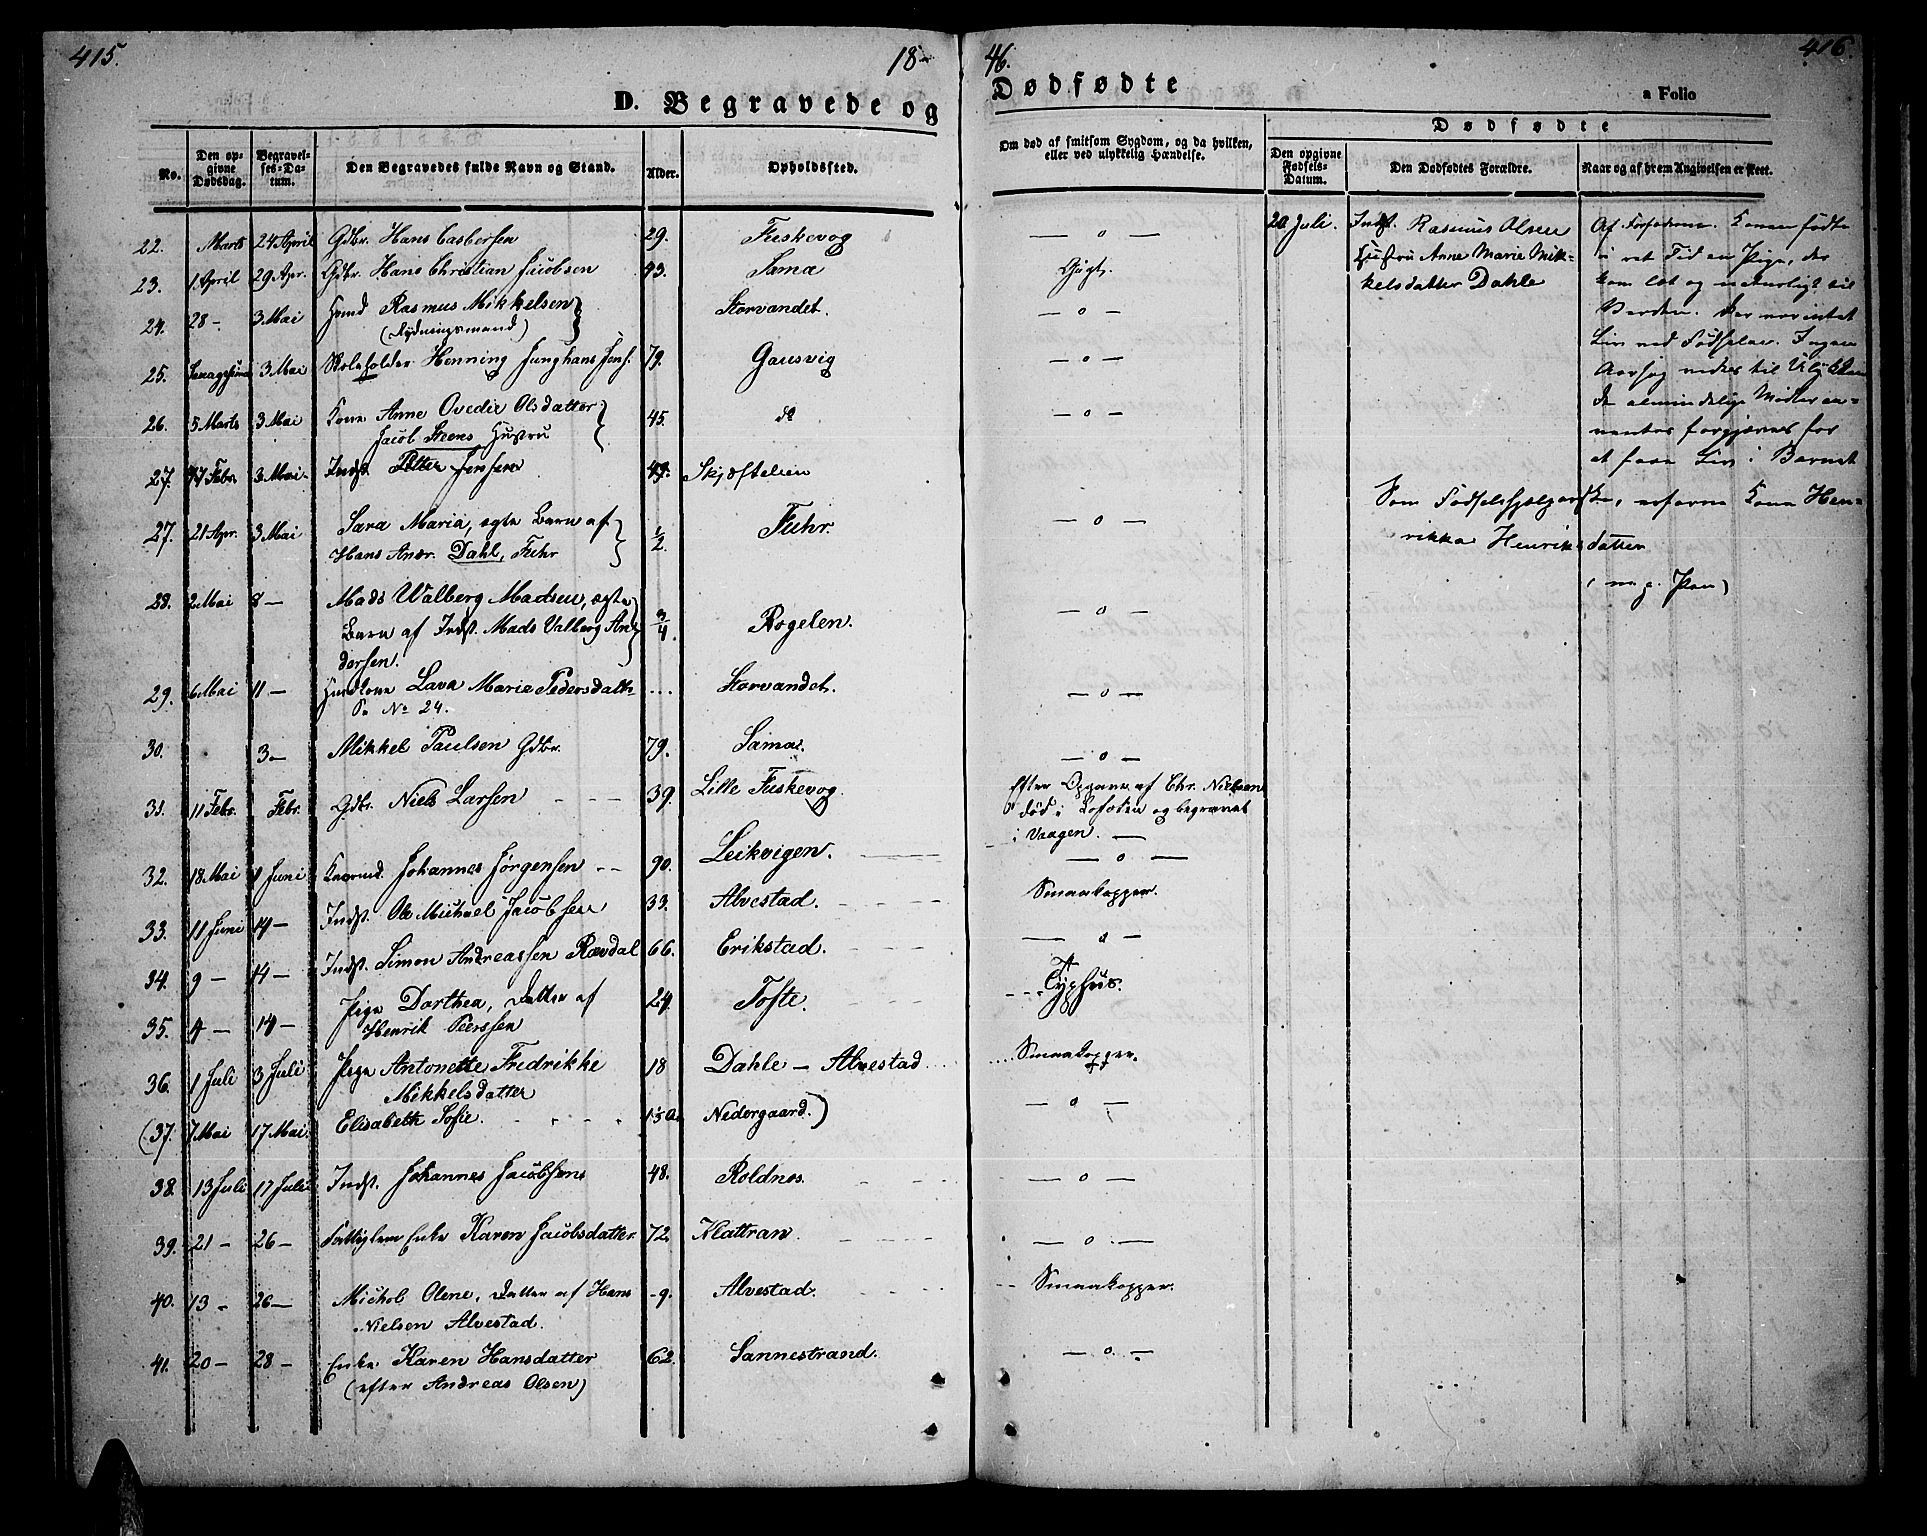 415.
18-
46.
416.
D. Begravede og
Dødfødte
a Folio
No.
Den op-
givne
Dødsdag.
Begravel-
ses-Da-
tum.
Den Begravedes fulde Navn og Stand.
Alder.
Opholdssted.
Om død af smitsom Sygdom, og da hvilken,
eller ved ulykkelig Hændelse.
Dødfødte
Den opgivne
Fødsels-
Datum.
Den Dødfødtes Forældre.
Naar og af hvem Angivelsen er skeet.
22. Marts 24 April Gdbr. Hans Casbersen 29. Fuskevog — o —
23. 1 April 29 Apr. Gdbr. Hans Christian Jacobsen 43. Sama Gigt.
24. 28 — 3 Mai Hmd Rasmus Mikkelsen Storvandet. — o —
(Rydningsmand)
25. 3 Mai Skoleholder Henning Junghans Jens. 79. Gausvig — o —
26. 5 Marts 3 Mai Kone Anne Ovedie Olsdatter 45. do — o —
Jacob Steens Hustru
27. 17 Febr 3 Mai. Indst. Petter Jensen 49. Skjoftelien
27. 21 Apr. 3 Mai Sara Maria, ægte Barn af 1/2. Fuhr. — o —
Hans Andr. Dahl, Fuhr
28. 2 Mai 8 — Mads Walberg Madsen, ægte 3/4. Rogelen. — o —
Barn af Indst. Mads Valberg An-
dersen.
29. 6 Mai 11 — Lava Maria Pedersdattr .... Storvandet. — o —
S. No 24.
30. 3 — Mikkel Paulsen Gdbr. 79. Sama. — o —
31. 11 Febr. Febr. Gdbr. Niels Larsen 39. Lille Fuskevog. Efter Opgave af Chr. Nielsen
død i Lofoten og begravet
i Vaagen. —
32. 18 Mai 1 Juni Johannes Jørgensen 90. Leikvigen. — o —
33. 11 Juni 14 — Indst. Ole Michael Jacobsen 33. Alvestad. Smaakopper.
34. 9 — 14 — Indst. Simon Andreassen Rævdal 66. Erikstad. — o —
35. 4 — 14 — Pige Dorthea, Datter af 24. Tofte. Typhus.
Henrik Peerssen
36. 1 Juli 3 Juli Pige Antonette Fredrikke 18 Dahle — Alvestad Smaakopper.
Mikkelsdatter
(37. 7 Mai 17 Mai. Elisabeth Sofie. Nedergaard.) — o —
38. 13 Juli 17 Juli Indst. Johannes Jacobsens 48. Roldnes. — o —
39. 21 — 26 — Fattiglem Enke Karen Jacobsdatter 72. Klattran. — o —
40. 13 — 26 — Michol Olene, Datter af Hans 9. Alvestad. Smaakopper.
Nielsen Alvestad.
41. 20 — 28 — Enke Karen Hansdatter 62. Sannestrand. — o —
(efter Andreas Olsen)
20 Juli. Indst. Rasmus Olsen
Hustru Anne Marie Mik-
kelsdatter Dahle
Af Faderen. Konen fødte
i ret Tid en Pige, der
kom let og naturligt til
Verden. Der var intet
Liv ved Fødselen. Ingen
Aarsag vides til Ulykken
De almindelige Midler an-
ventes forgjæves for
at faae Liv i Barnet
Som Fødselshjelperske, erfarne Kone Hen-
rikka Henriksdatter